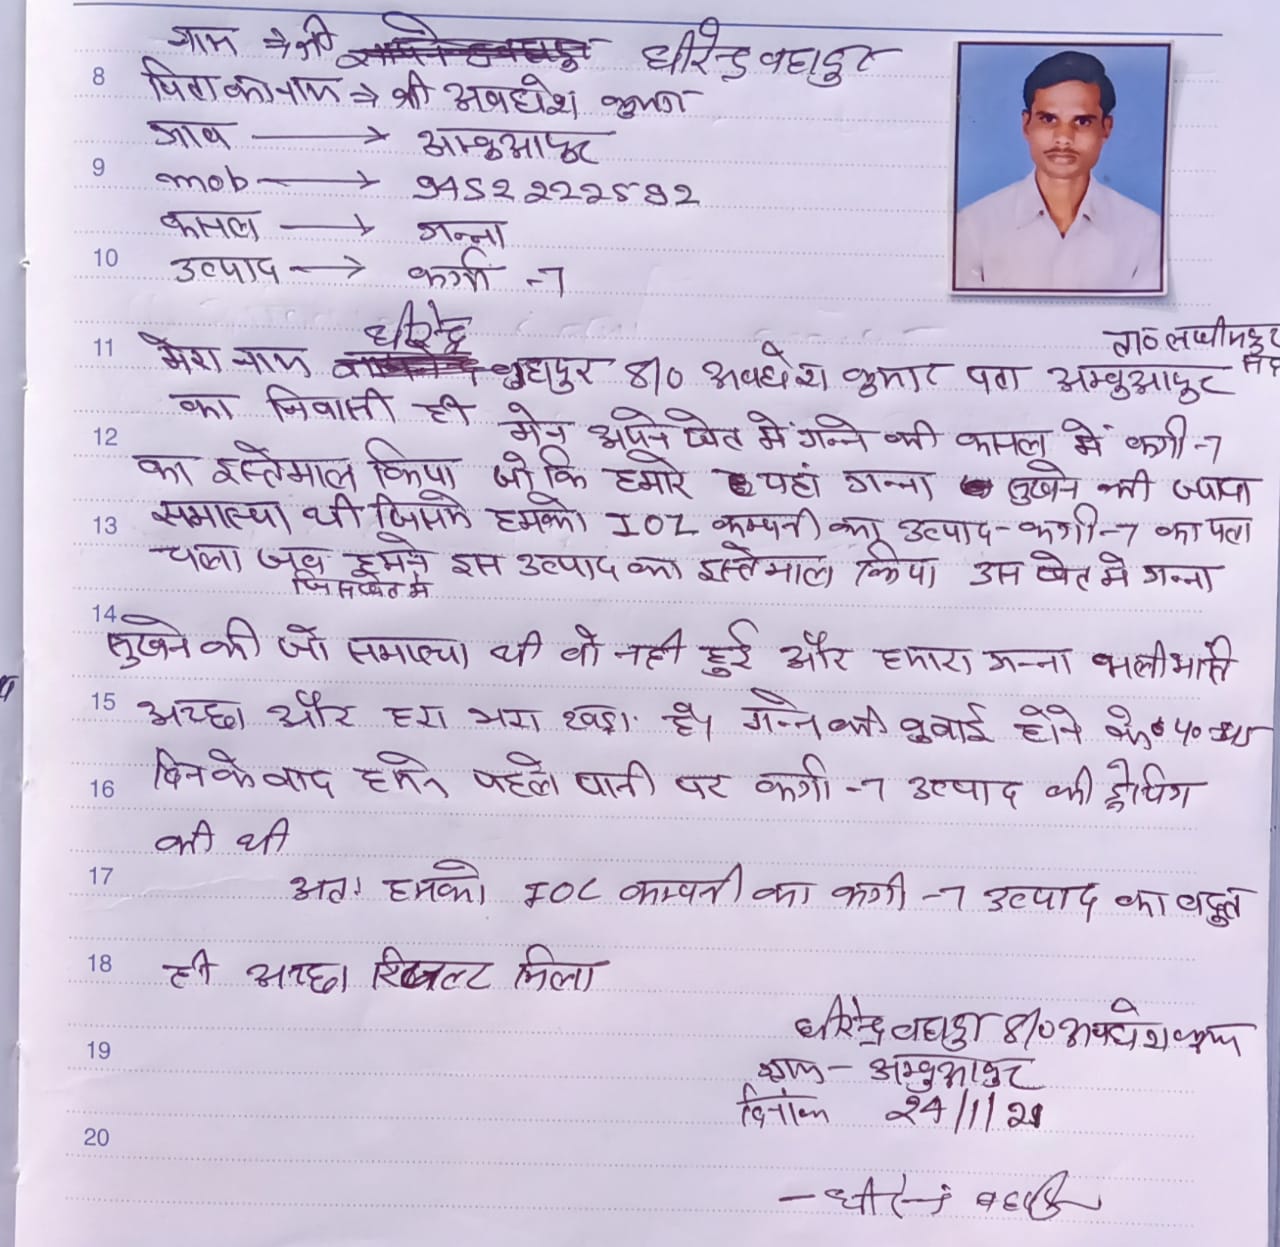 नाम → श्री धीरेन्द्र बहादुर
8
पिता का नाम → श्री अवधेश कुमार
गाव → अम्बुआपुर
9
mob → 9452222592
फसल → गन्ना
10
उत्पाद → कर्गी -7
धीरेन्द्र
ता० लखीमपुर
11
मेरा नाम बहादुर S/O अवधेश कुमार पता अम्बुआपुर
का निवासी हूँ मैने अपने खेत में गन्ने की फसल में कर्गी-7
12
का इस्तेमाल किया जो कि हमारे यहां गन्ना सुखने की ज्यादा
समास्या थी जिससे हमको IOL कम्पनी का उत्पाद - कर्गी-7 का पता
13
चला जब हमने इस उत्पाद का इस्तेमाल किया उस खेत मे गन्ना
जिस खेत मे
14
सुखने की जो समास्या थी वो नही हुई और हमारा गन्ना भली भाति
15
अच्छा और हरा भरा खड़ा है। गन्ने की बुवाई होने के 40-45
दिन के बाद हमने पहले पानी पर कर्गी -7 उत्पाद की ड्रेचिंग
16
की थी
17
अतः हमको IOL कम्पनी का कर्गी -7 उत्पाद का बहुत
18
ही अच्छा रिजल्ट मिला
धीरेन्द्र बहादुर S/O अवधेश कुमार
19
ग्राम - अम्बुआपुर
दिनांक 24/1/21
20
- धीरेन्द्र बहादुर